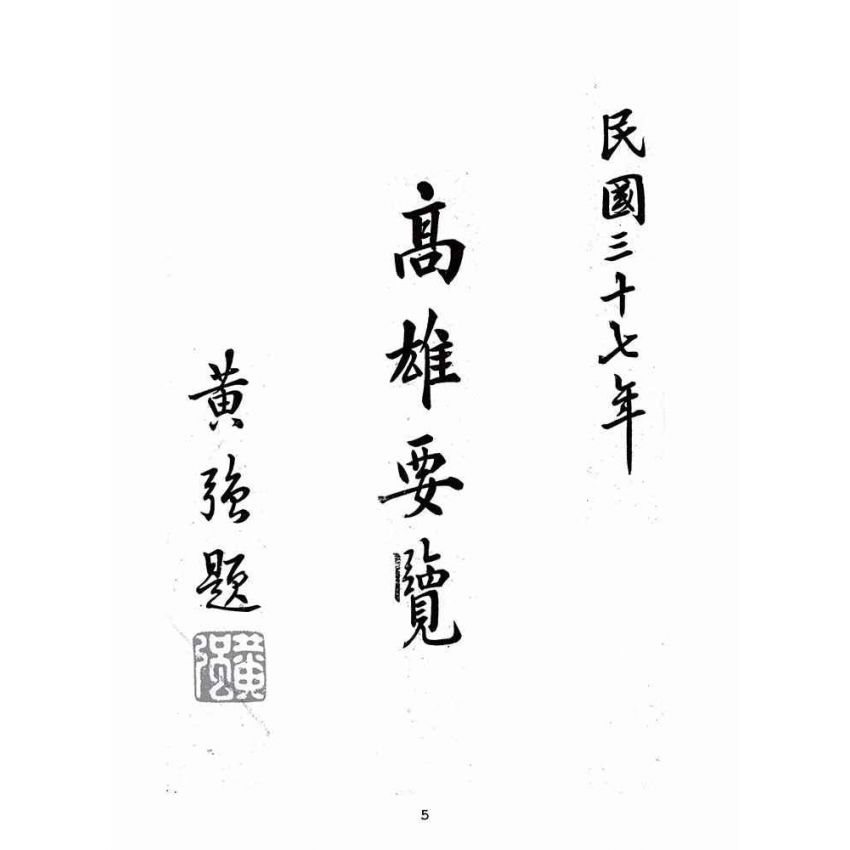 民國三十七年
高雄要覽
黃強題
黃強
5